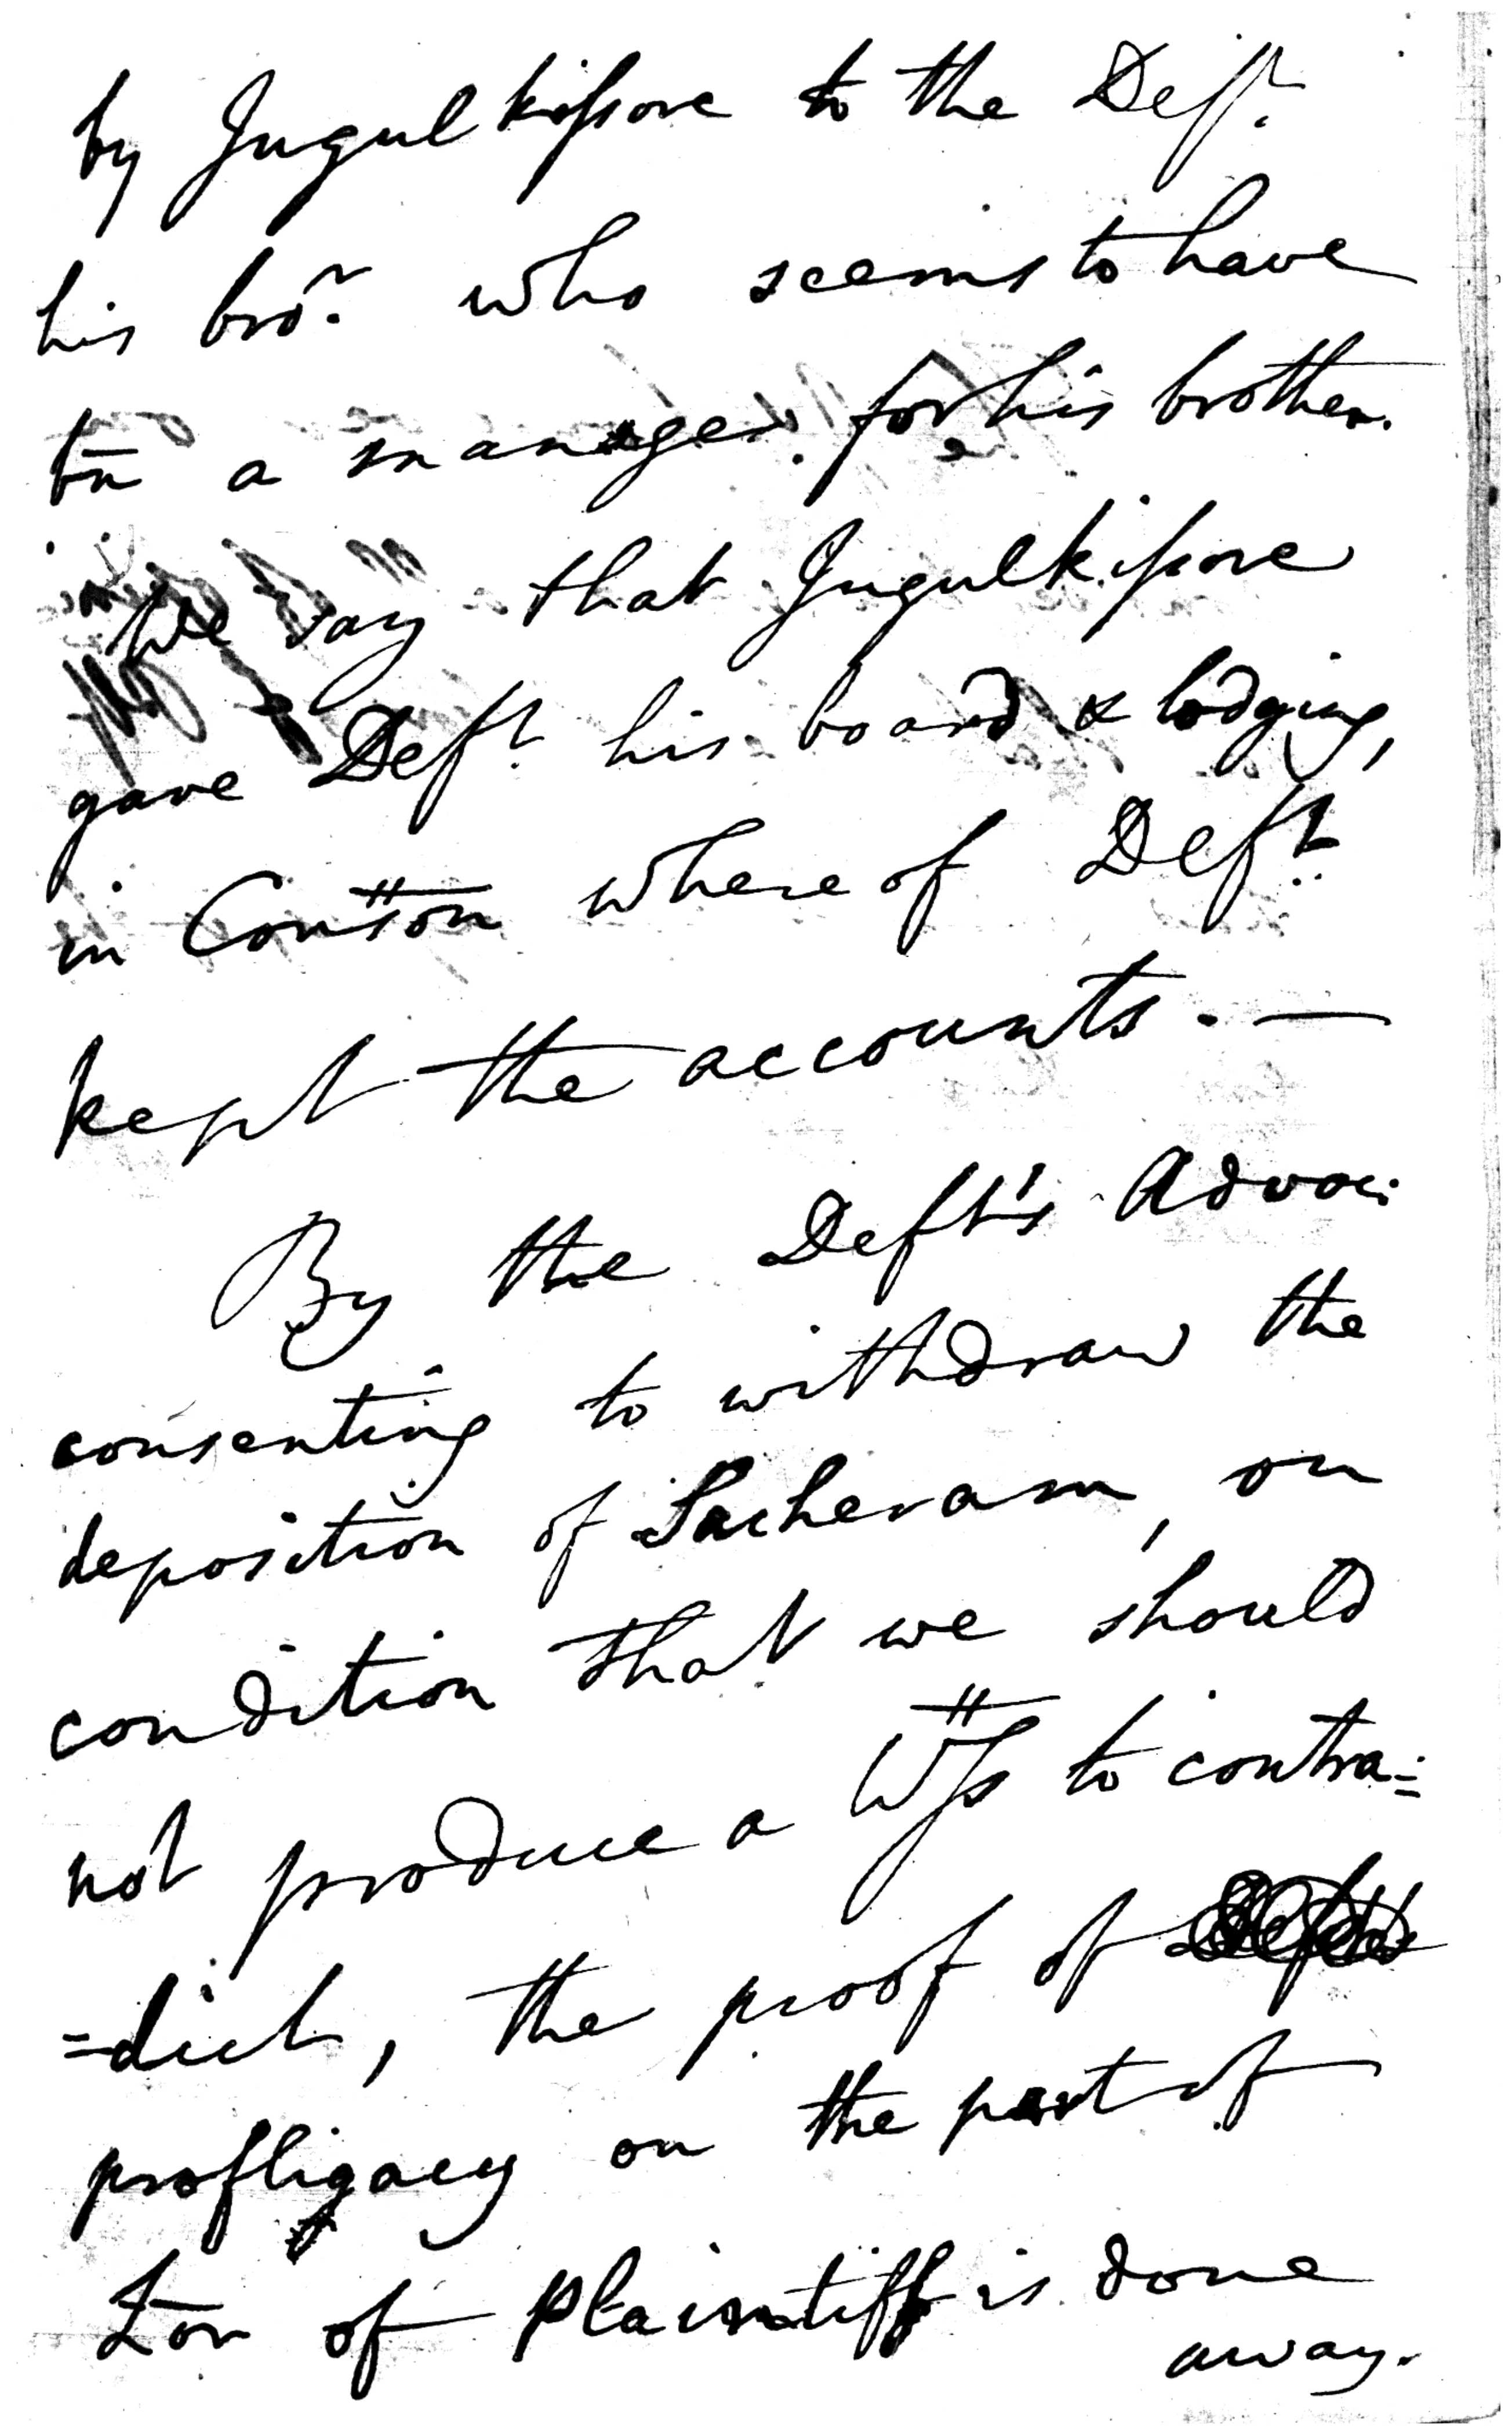 by Jugulkissore to the Deft.
his bror. who seems to have
bn a manager. for his brother.
We say that Jugulkissore
gave Deft. his board & lodging,
in Contton whereof Deft.
kept the accounts. —
By the Deft's Advoc.
consenting to withdraw the
deposition of Sacheram, on
condition that we should
not produce a Wss to contra=
=dict, the proof of
profligacy on the part of
of Plaintiff is done
away.